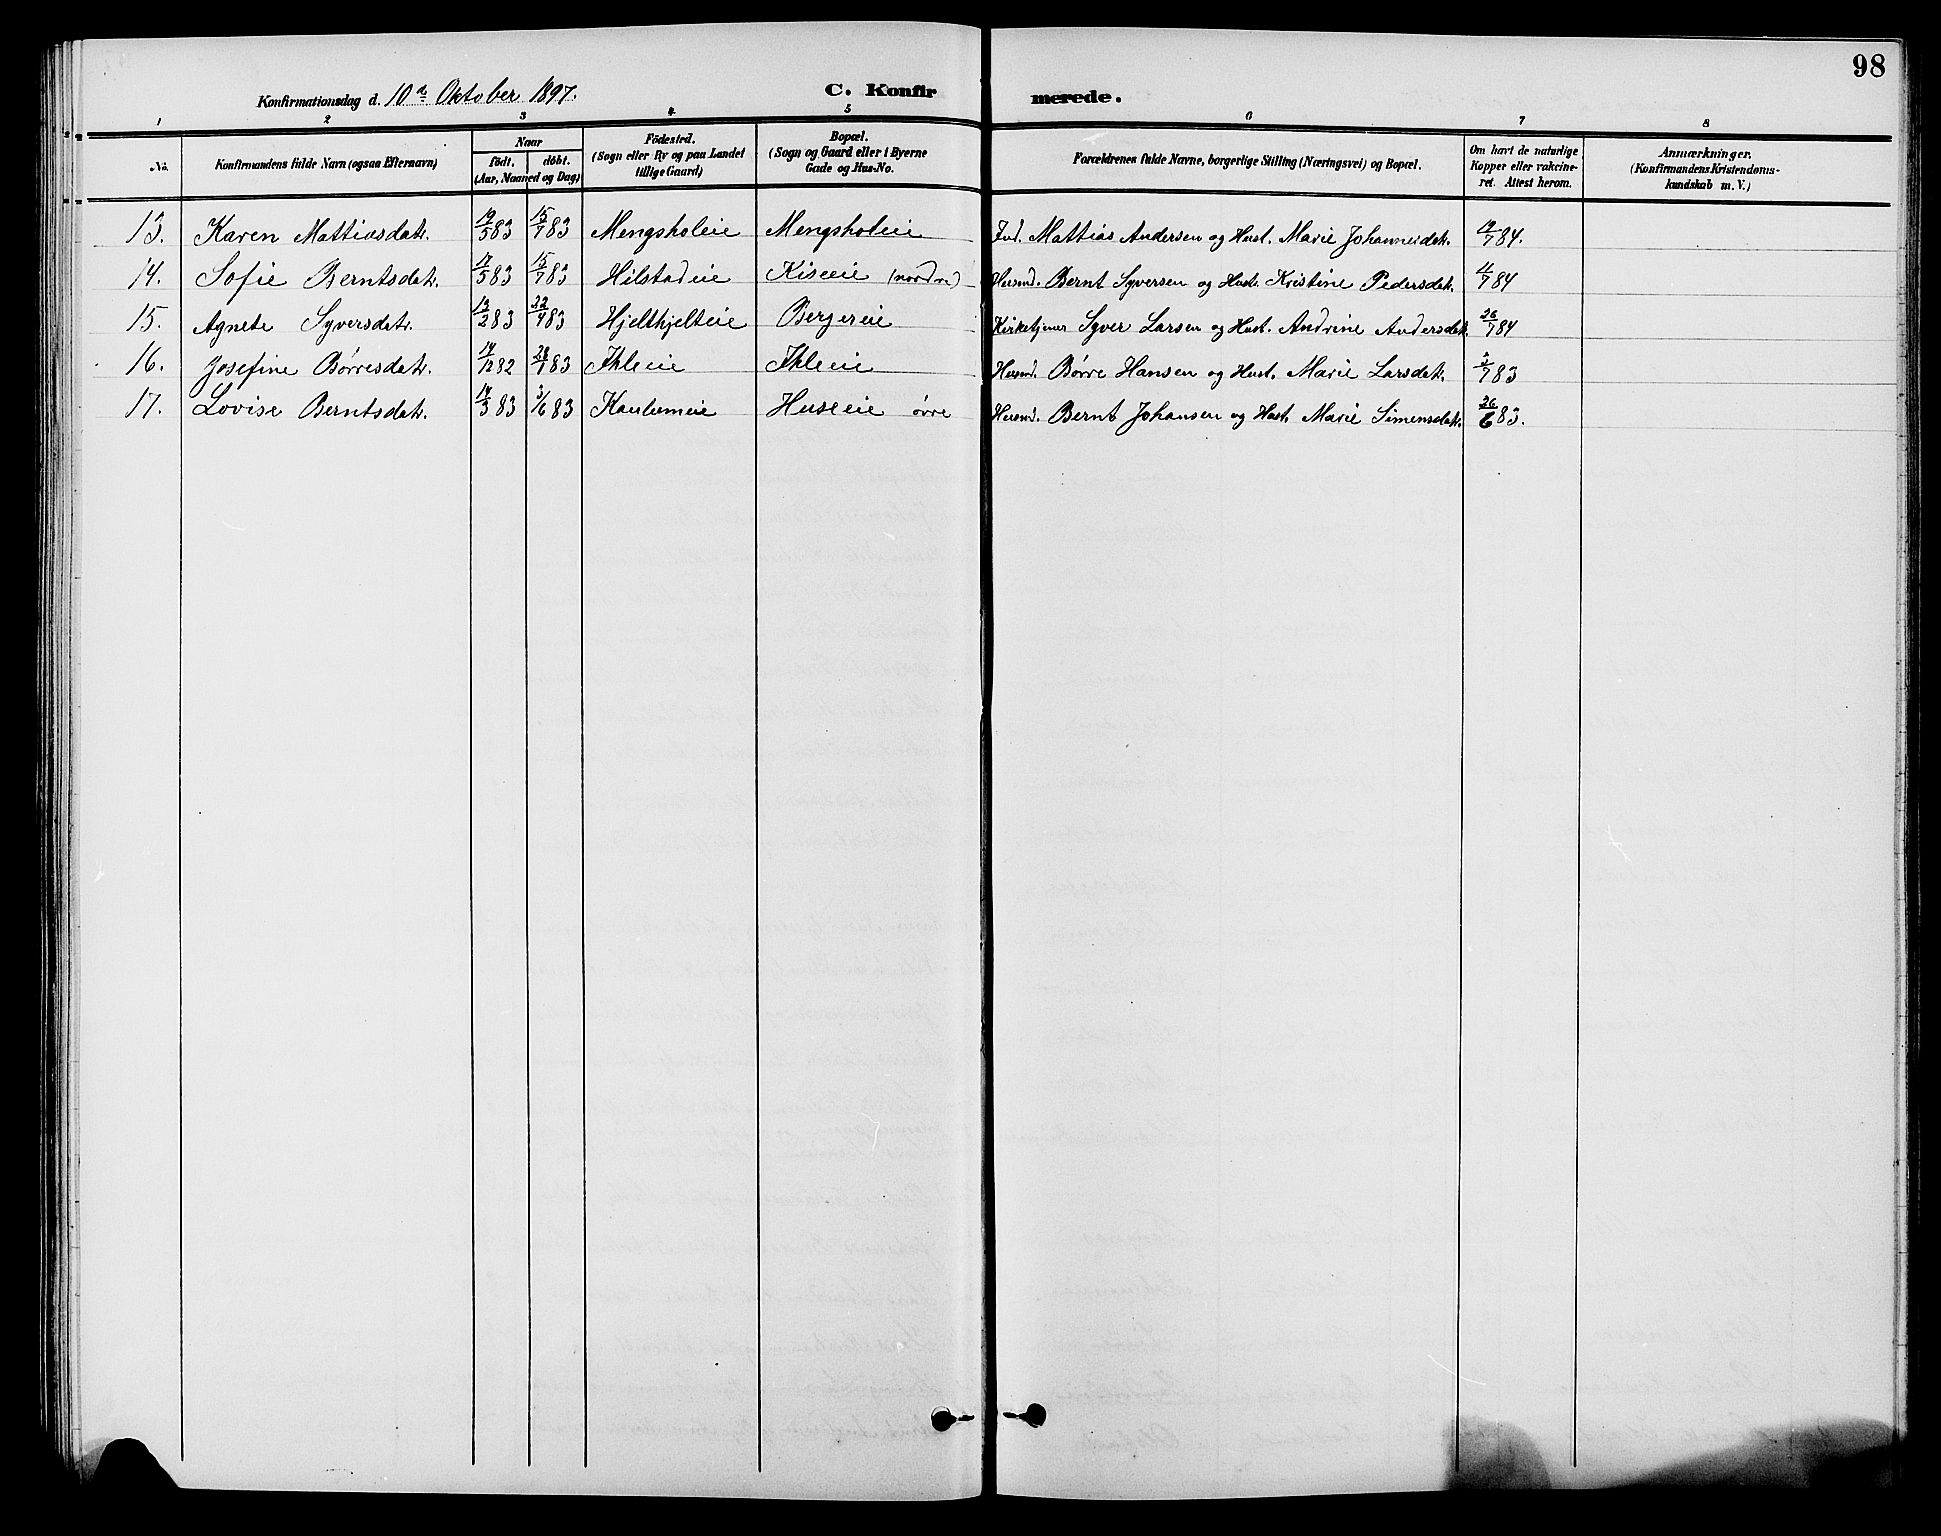 98
Konfirmationsdag d. 10de Oktober 1897. C. Konfirmerede.
1 2 3 4 5 6 7 8
No. Konfirmandens fulde Navn (ogsaa Efternavn) Naar født. døbt. (Aar, Maaned og Dag) Fødested. (Sogn eller By og paa Landet tillige Gaard) Bopæl. (Sogn og Gaard eller i Byerne Gade og Hus-No. Forældrenes fulde Navne, borgerlige Stilling (Næringsvei) og Bopæl. Om havt de naturlige Kopper eller vakcineret. Attest herom. Anmærkninger. (Konfirmandens Kristendomskundskab m. V.)
13. Karen Mattiasdatr. /5 83 15/7 83 Mengsholeie Mengsholeie Ind. Mattias Andersen og Hust. Marie Johannesdatr. /7 84.
14. Sofie Berntsdatr. /5 83 15/7 83 Hilstadeie Kiseeie (nordre) Husmd. Bernt Syversen og Hust. Kristine Pedersdatr. 11/7 84
15. Agnete Syversdatr. 12/2 83 22/4 83 Hjelthjelteie Bergereie Kirketjener Syver Larsen og Hust. Andrine Andersdatr. 26/7 84
16. Josefine Børresdatr. 14/12 82 /1 83 Ihleeie Ihleeie Husmd. Børre Hansen og Hust. Marie Larsdatr. /7 83
17. Lovise Berntsdatr. 14/3 83 3/6 83 Kaulumeie Huseeie øvre Husmd. Bernt Johansen og Hust. Marie Simensdatr. 26/6 83.